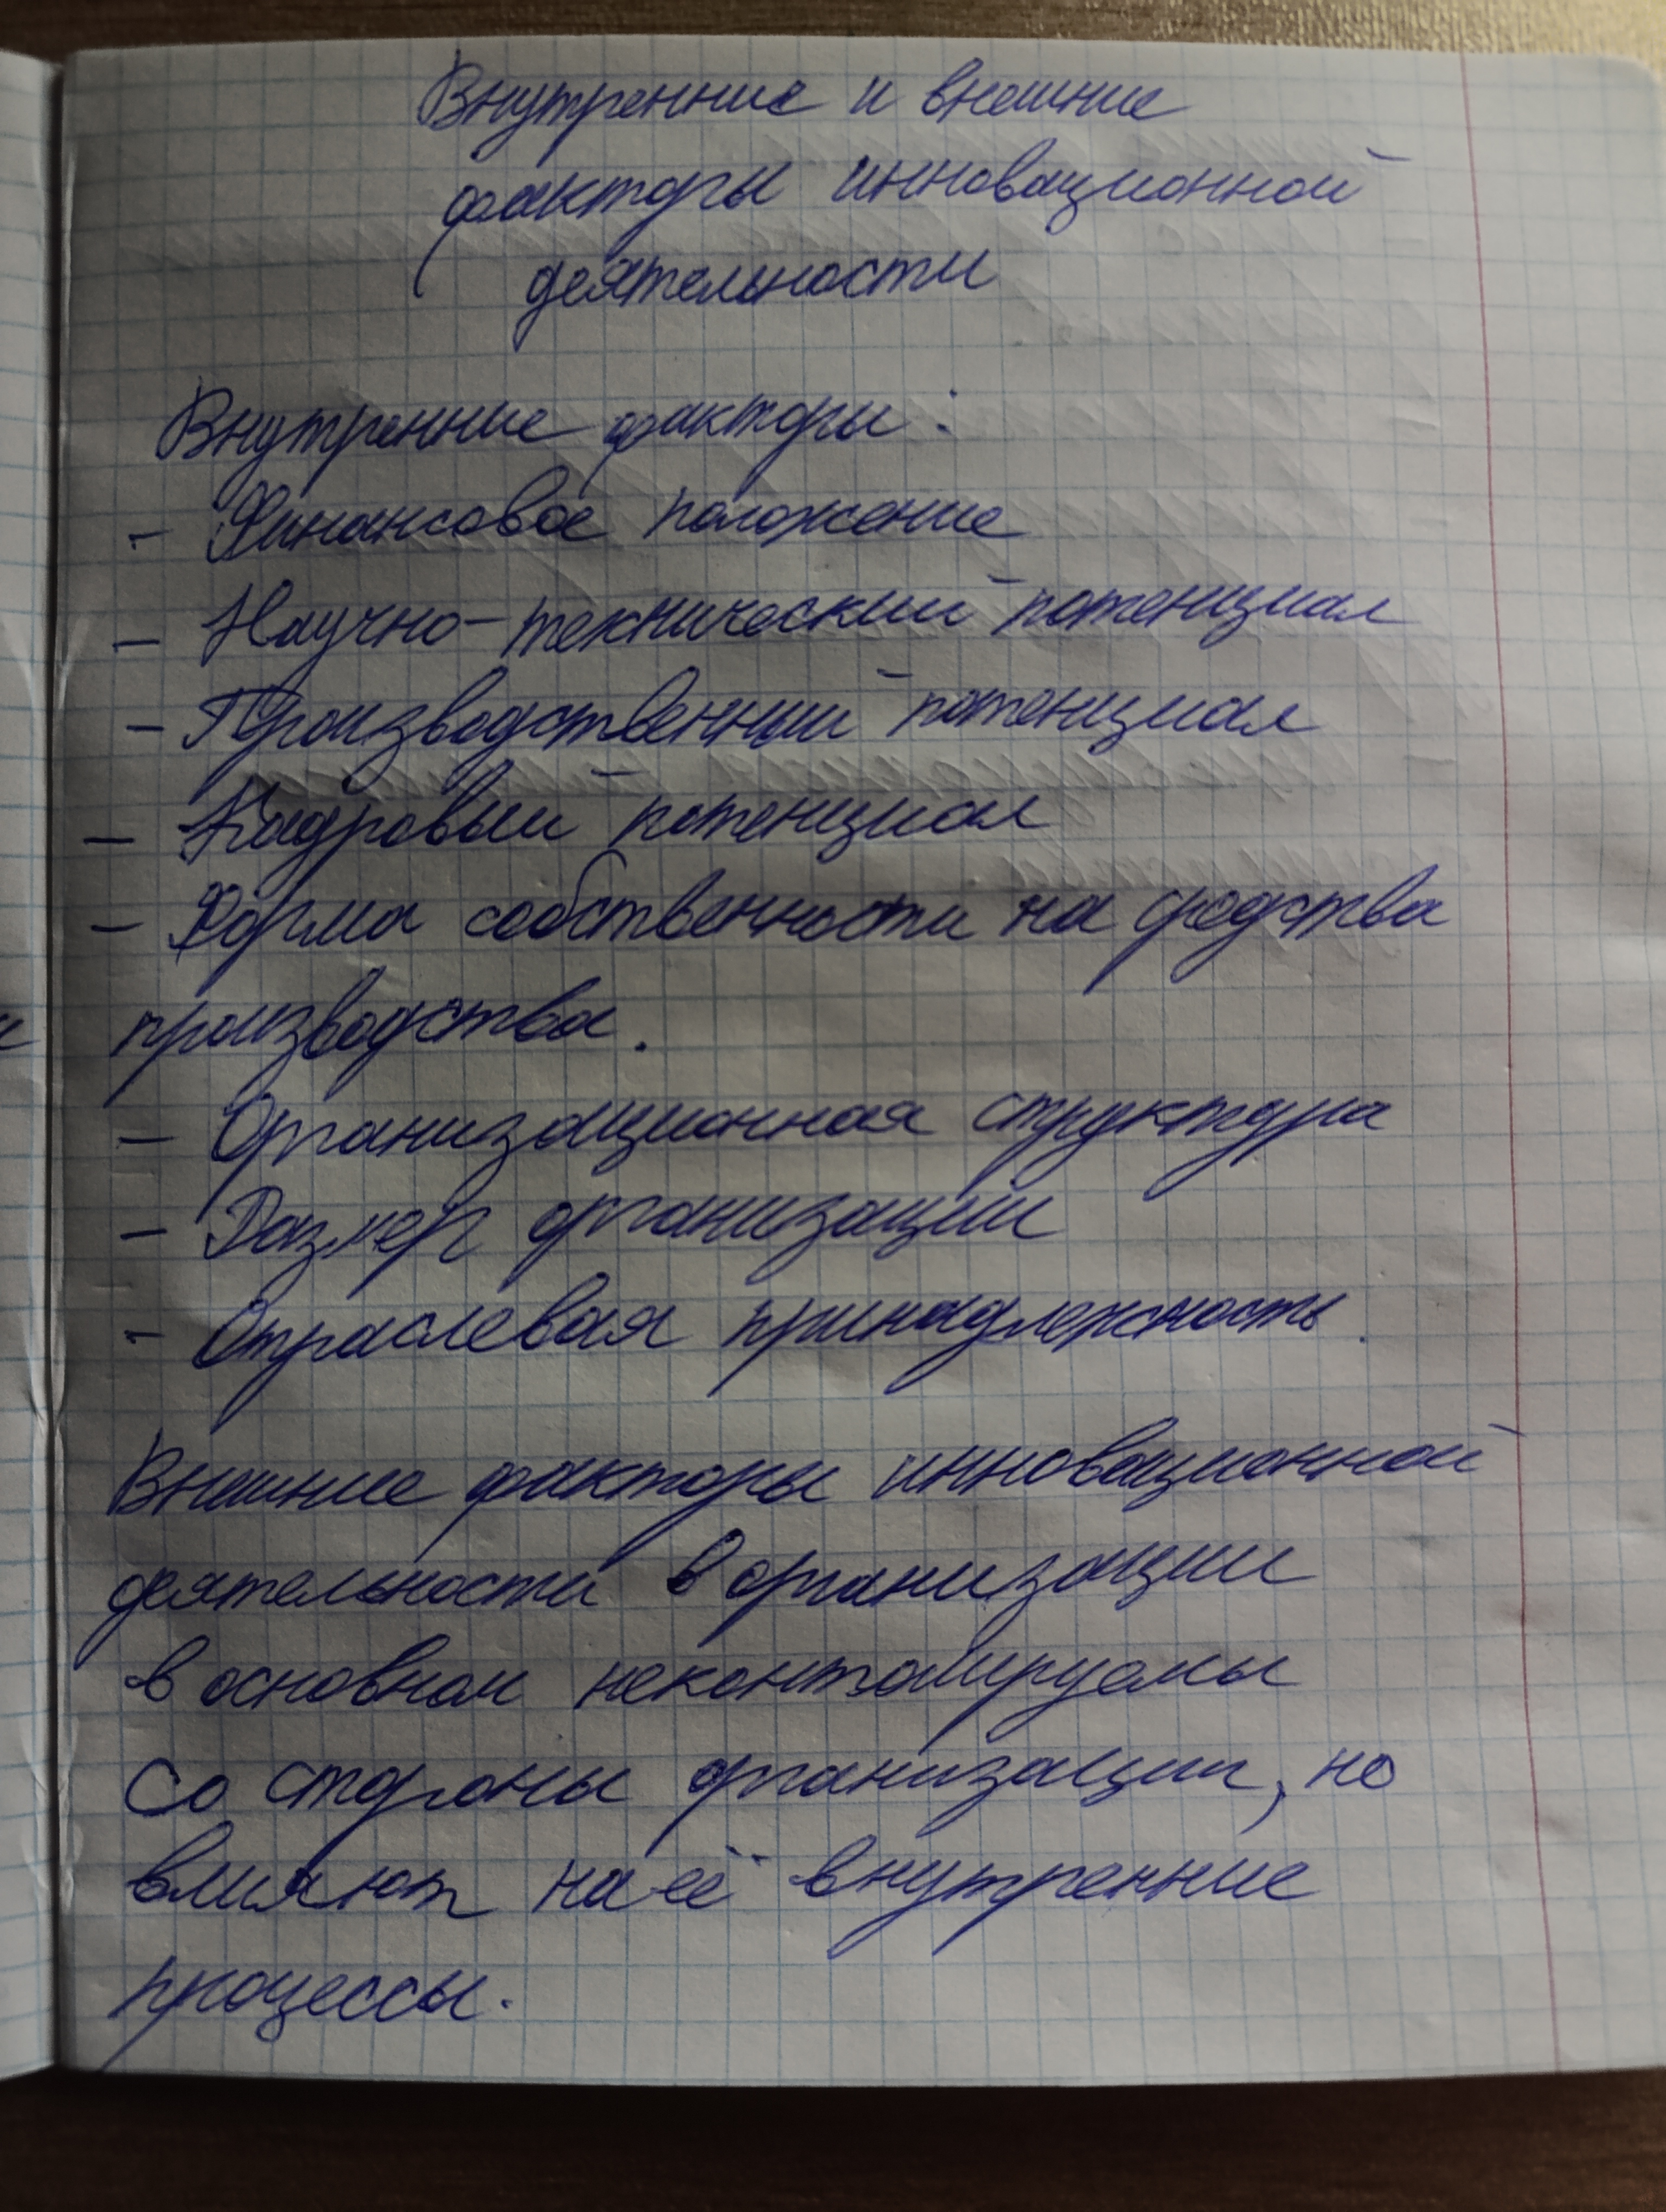 Внутренние и внешние
факторы инновационной
деятельности
Внутренние факторы:
- Финансовое положение
- Научно-технический потенциал
- Производственный потенциал
- Кадровый потенциал
- Форма собственности на средства
производства.
- Организационная структура
- Размер организации
- Отраслевая принадлежность.
Внешние факторы инновационной
деятельности в организации
в основном неконтролируемы
со стороны организации, но
влияют на её внутренние
процессы.